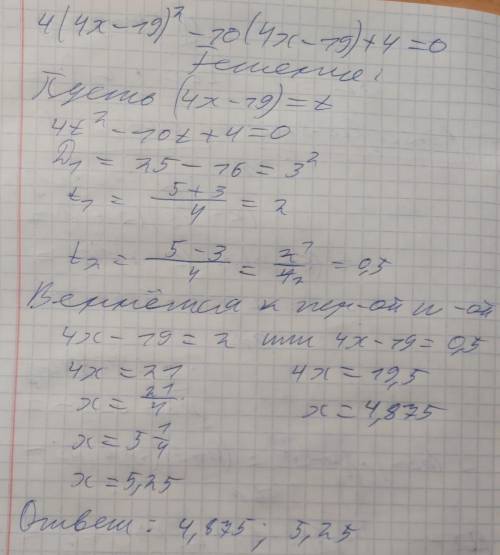 4(4x-19)² - 10(4x-19)+4=0
Решение:
Пусть (4x-19)=t
4t² - 10t+4=0
D₁ = 25-16=3²
t₁ = (5+3)/4 = 2
t₂ = (5-3)/4 = 2¹/4₂ = 0,5
Вернёмся к пер-ой п-ой
4x-19=2 или 4x-19=0,5
4x=21 4x=19,5
x=21/4 x=4,875
x=5 1/4
x=5,25
Ответ: 4,875; 5,25